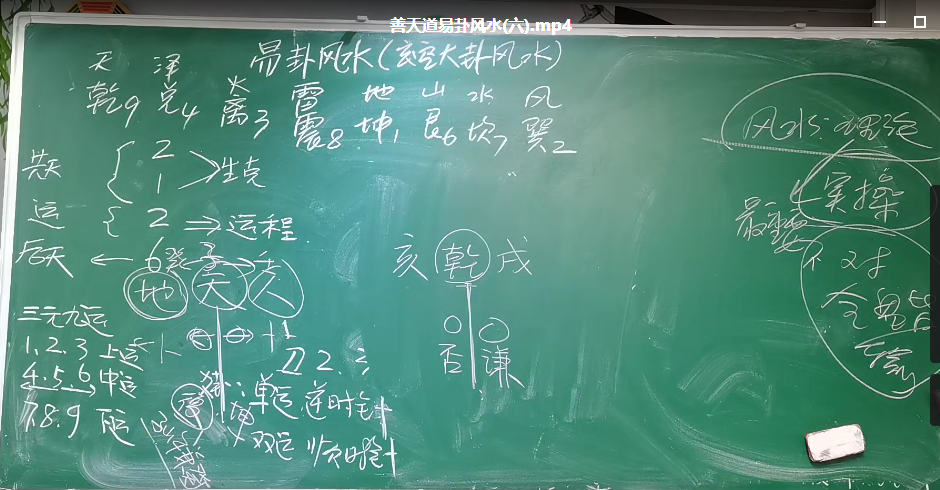 善天道易卦风水(六).mp4
易卦风水(玄空大卦风水)
天 泽 火 雷 地 山 水 风
乾9 兑4 离3 震8 坤1 艮6 坎7 巽2
先天 { 2 1 } 生克
运 { 2 ⇒ 运程
后天 ← 6 癸 子 → 壬
地 天 人
三元九运
1、2、3 上运
4、5、6、中运
7.8.9 下运
1 2、3
单运 逆时针
双运 顺时针
亥 乾 戌
否 谦
风水理论
实操
最重要
对
全盘皆